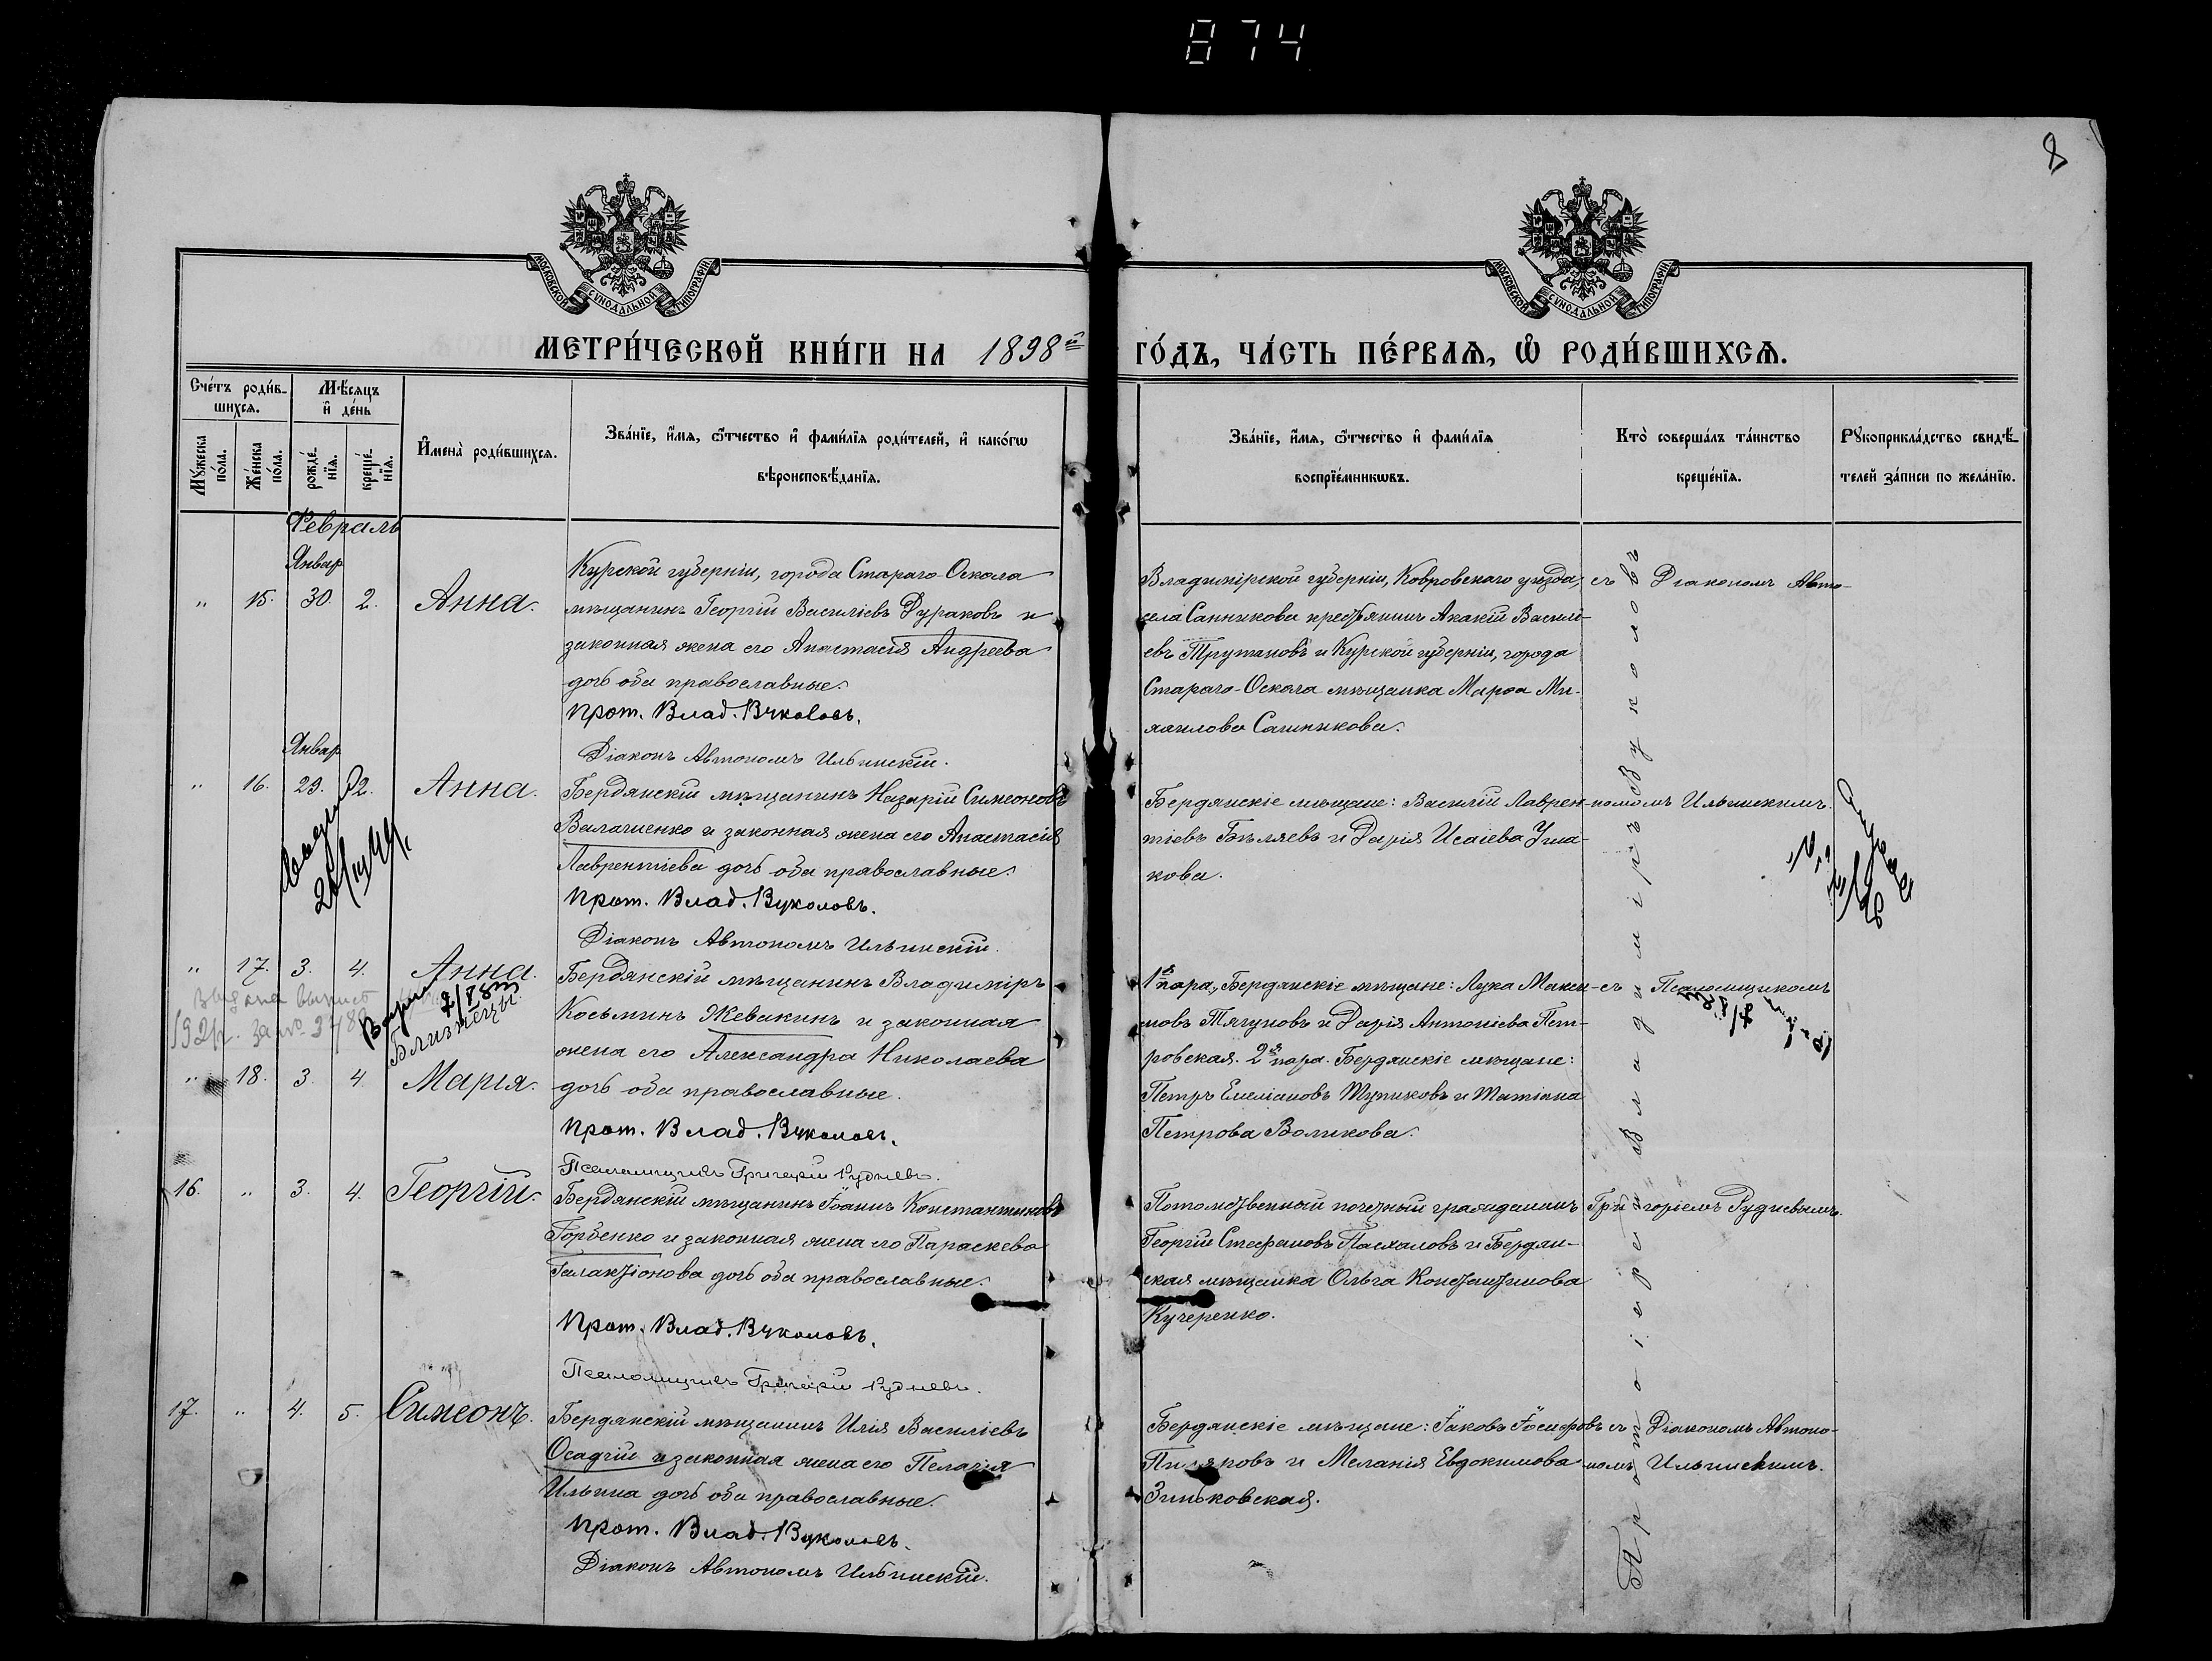 874
8
МОСКОВСКОЙ СѴНОДАЛЬНОЙ ТИПОГРАФІИ
МОСКОВСКОЙ СѴНОДАЛЬНОЙ ТИПОГРАФІИ
МЕТРИ́ЧЕСКОЙ КНИ́ГИ НА 1898й
ГО́ДЪ, ЧА́СТЬ ПЕ́РВАѦ, Ѿ РОДИ́ВШИХСѦ.
Сче́тъ роди́в-
шихсѧ.
Мѣ́сяцъ
и҆ де́нь
Мꙋ́жеска
по́ла.
Же́нска
по́ла.
рожде́-
нїѧ.
креще́-
нїѧ.
И҆мена̀ роди́вшихсѧ.
Зва́нїе, и҆́мѧ, ѻ҆́тчество и҆ фами́лїѧ роди́телей, и҆ како́гѡ
вѣроисповѣ́данїѧ.
Зва́нїе, и҆́мѧ, ѻ҆́тчество и҆ фами́лїѧ
воспрїе́мникѡвъ.
Кто̀ соверша́лъ та́инство
креще́нїѧ.
Рꙋкоприкла́дство свидѣ́-
телей за́писи по жела́нїю.
Февраль
Январ
" 15. 30. 2. Анна.
Курской губерніи, города Стараго-Оскола
мѣщанинъ Георгій Василіевъ Дураковъ и
законная жена его Анастасія Андреева
дочь оба православные.
Прот. Влад. Вуколовъ.
Діаконъ Автономъ Ильинскій.
Владимірской губерніи, Ковровскаго уѣзда,
села Санникова крестьянинъ Акакій Василі-
евъ Трутановъ и Курской губерніи, города
Стараго-Оскола мѣщанка Марѳа Ми-
хаилова Санникова.
съ Діакономъ Авто-
Январ
" 16. 29. 2. Анна.
Бердянскій мѣщанинъ Назарій Симеоновъ
Валачиенко и законная жена его Анастасія
Лаврентіева дочь оба православные.
Прот. Влад. Вуколовъ.
Діаконъ Автономъ Ильинскій.
Бердянскіе мѣщане: Василій Лаврен-
тіевъ Бѣляевъ и Дарія Исаіева Уша-
кова.
номомъ Ильинскимъ.
" 17. 3. 4. Анна.
Близнецы.
" 18. 3. 4. Марія.
Бердянскій мѣщанинъ Владиміръ
Косьминъ Жевакинъ и законная
жена его Александра Николаева
дочь оба православные.
Прот. Влад. Вуколовъ.
Псаломщикъ Григорій Рудневъ.
1я пара, Бердянскіе мѣщане: Лука Макси-
мовъ Тягуновъ и Дарія Антоніева Пет-
ровская. 2я пара. Бердянскіе мѣщане:
Петръ Емеліановъ Тупиковъ и Татіана
Петрова Воликова.
съ Псаломщикомъ
16. " 3. 4. Георгій.
Бердянскій мѣщанинъ Іоаннъ Константиновъ
Горбенко и законная жена его Параскева
Галактіонова дочь оба православные.
Прот. Влад. Вуколовъ.
Псаломщикъ Григорій Рудневъ.
Потомственный почетный гражданинъ
Георгій Стефановъ Пасхаловъ и Бердян-
ская мѣщанка Ольга Константинова
Кучеренко.
Григоріемъ Рудневымъ.
17. " 4. 5. Симеонъ.
Бердянскій мѣщанинъ Илія Василіевъ
Осадчій и законная жена его Пелагія
Ильина дочь оба православные.
Прот. Влад. Вуколовъ.
Діаконъ Автономъ Ильинскій.
Бердянскіе мѣщане: Іаковъ Іосифовъ
и Меланія Евдокимова
Зиньковская.
съ Діакономъ Автоно-
момъ Ильинскимъ.
Протоіерей Владиміръ Вуколовъ